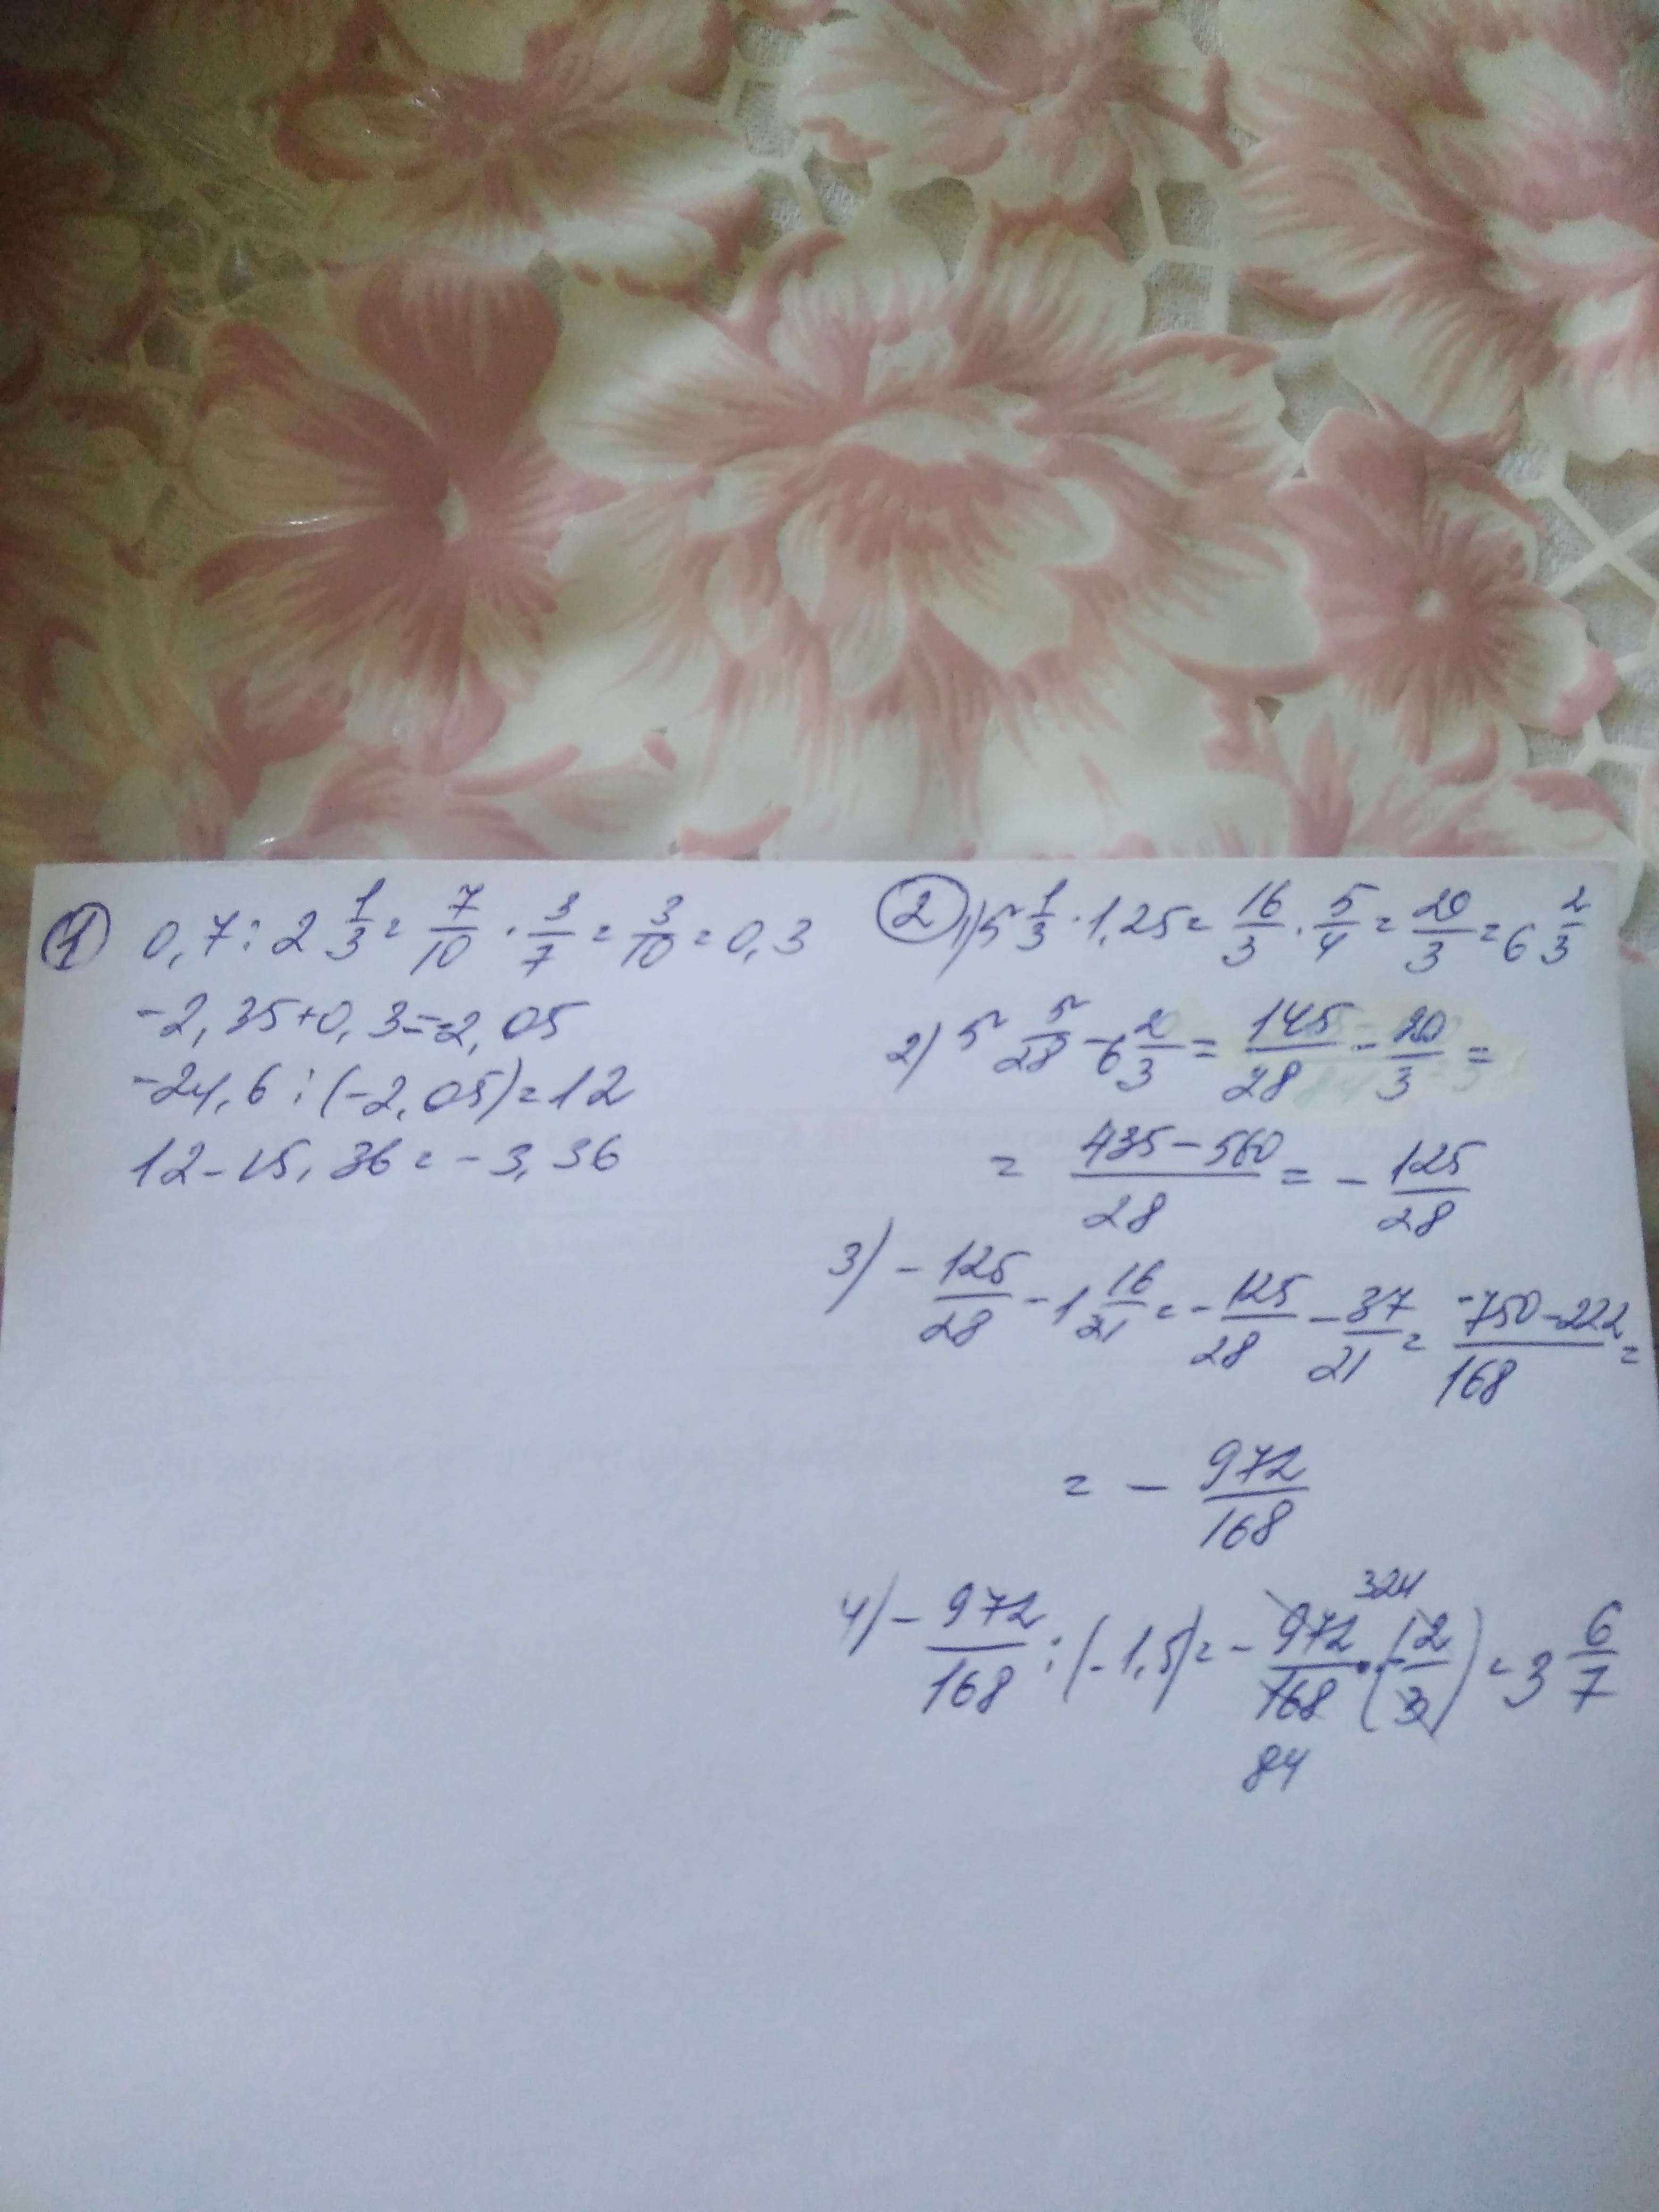 ① 0,7 : 2 1/3 = 7/10 · 3/7 = 3/10 = 0,3
-2,35+0,3=-2,05
-24,6 : (-2,05)=12
12-15,36=-3,36
② 1) 5 1/3 · 1,25 = 16/3 · 5/4 = 20/3 = 6 2/3
2) 5 5/28 - 6 20/3 = 145/28 - 20/3 =
= 435-560/28 = - 125/28
3) - 125/28 - 1 16/21 = - 125/28 - 37/21 = -750-222/168 =
= - 972/168
324
4) - 972/168 : (-1,5) = - 972/168 · (-2/3) = 3 6/7
84